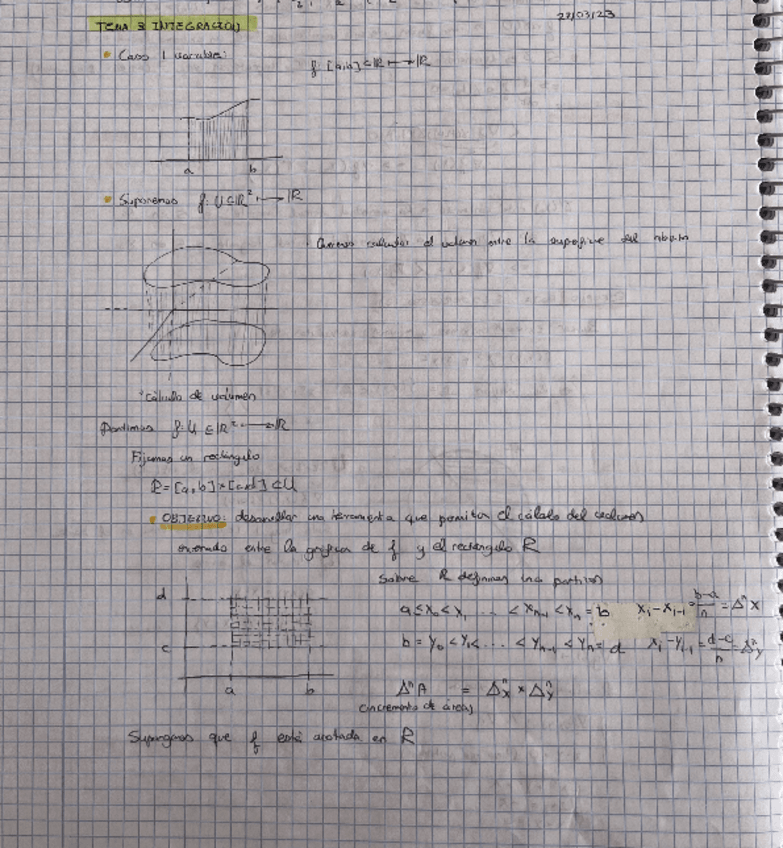 27/03/23
TEMA 3 INTEGRACION
• Caso 1 variable:
f: [a,b] ⊆ ℝ ⟼ ℝ
a b
• Suponemos f: U ⊆ ℝ² ⟼ ℝ
calcular el volumen entre la superficie del
Cálculo de volumen
Partimos f: U ⊆ ℝ² ⟶ ℝ
Fijamos un rectángulo
R = [a,b] × [c,d] ⊂ U
• OBJETIVO: desarrollar una herramienta que permita el cálculo del volumen
entre la gráfica de f y el rectángulo R
Sobre R definimos una partición
d
c
a b
a ≤ x₀ < x₁ ... < xₙ₋₁ < xₙ = b xᵢ - xᵢ₋₁ = (b-a)/n = Δⁿx
b = y₀ < y₁ < ... < yₙ₋₁ < yₙ = d xᵢ - yᵢ₋₁ = (d-c)/n = Δⁿy
ΔⁿA = Δⁿx × Δⁿy
(incremento de áreas)
Supongamos que f está acotada en R